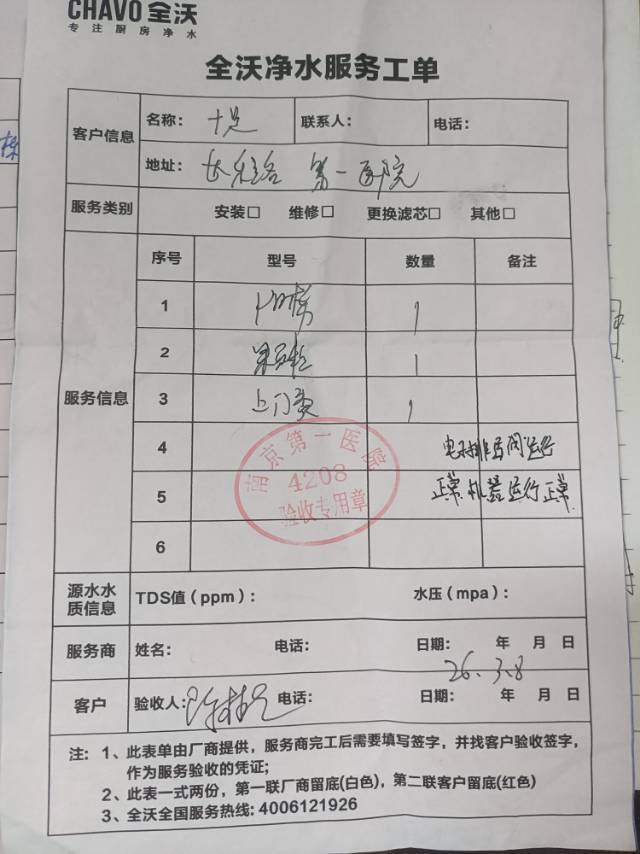 CHAVO全沃
专注厨房净水
全沃净水服务工单
客户信息
名称：
联系人：
电话：
地址： 第一医院
服务类别
安装□ 维修□ 更换滤芯□ 其他□
服务信息
序号 型号 数量 备注
1 1
2 1
3 上门费 1
4
5 正常 机器运行正常
6
南京第一医院
4208
验收专用章
源水水质信息
TDS值（ppm）： 水压（mpa）：
服务商 姓名： 电话： 日期： 年 月 日
26.3.8
客户 验收人： 电话： 日期： 年 月 日
注：1、此表单由厂商提供，服务商完工后需要填写签字，并找客户验收签字，
作为服务验收的凭证；
2、此表一式两份，第一联厂商留底(白色)，第二联客户留底(红色)
3、全沃全国服务热线：4006121926